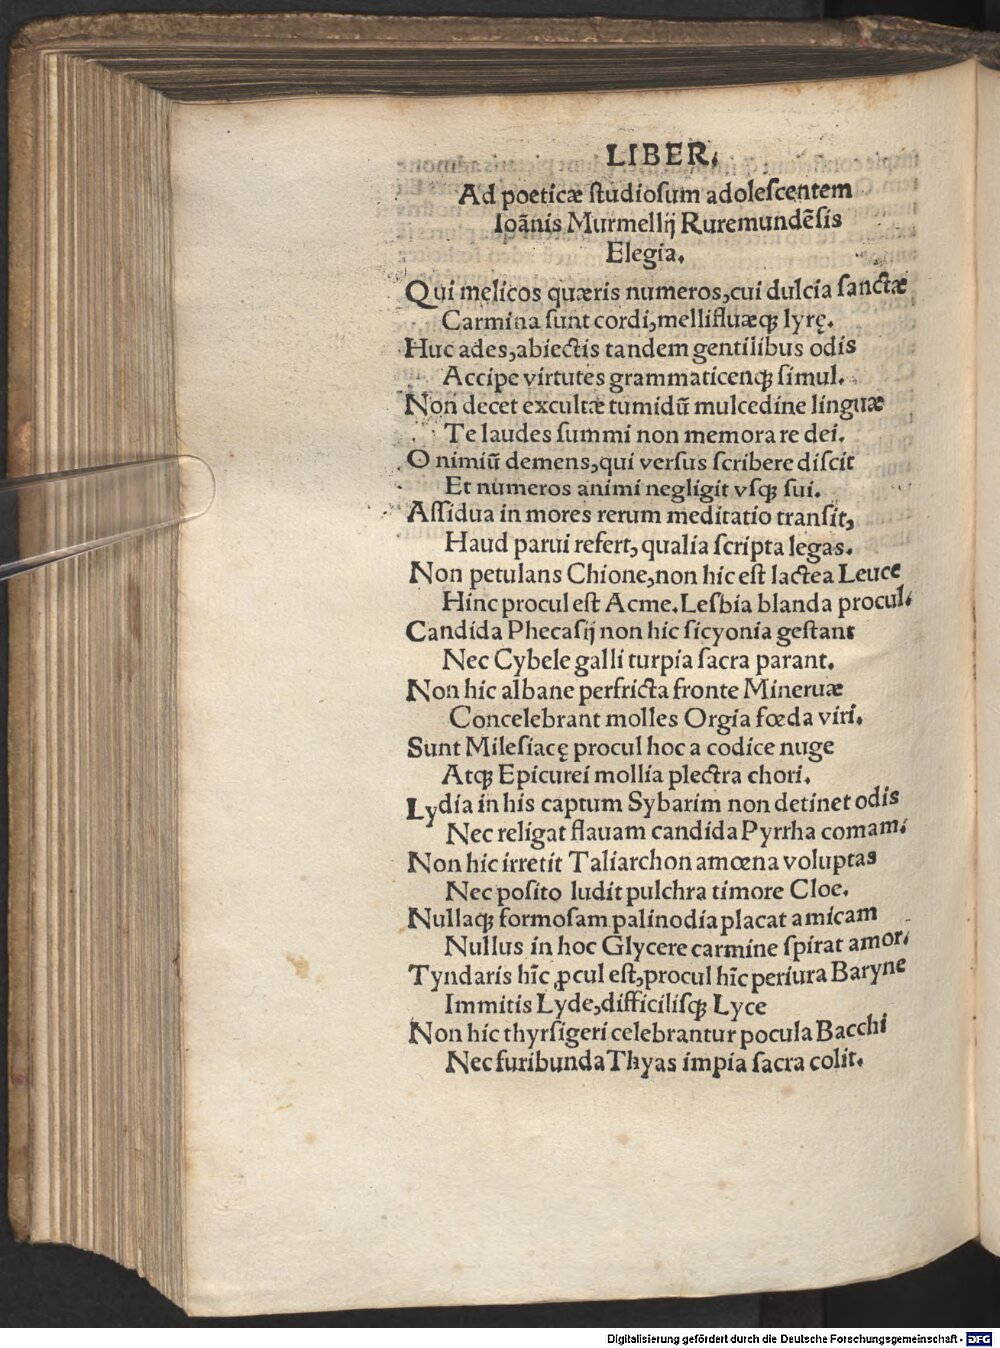 LIBER.
Ad poeticæ ſtudioſum adoleſcentem
Ioãnis Murmellij Ruremundẽſis
Elegia.
Qui melicos quæris numeros,cui dulcia ſanctæ
Carmina ſunt cordi,mellifluæqꝫ lyrę.
Huc ades,abiectis tandem gentilibus odis
Accipe virtutes grammaticenqꝫ ſimul.
Non decet excultæ tumidũ mulcedine linguæ
Te laudes ſummi non memorare dei.
O nimiũ demens,qui verſus ſcribere diſcit
Et numeros animi negligit vſqꝫ ſui.
Aſſidua in mores rerum meditatio tranſit,
Haud parui refert, qualia ſcripta legas.
Non petulans Chione,non hic eſt lactea Leuce
Hinc procul eſt Acme.Leſbia blanda procul.
Candida Phecaſij non hic ſicyonia geſtant
Nec Cybele galli turpia ſacra parant.
Non hic albane perfricta fronte Mineruæ
Concelebrant molles Orgia fœda viri.
Sunt Mileſiacę procul hoc a codice nuge
Atqꝫ Epicurei mollia plectra chori.
Lydia in his captum Sybarim non detinet odis
Nec religat flauam candida Pyrrha comam.
Non hic irretit Taliarchon amœna voluptas
Nec poſito ludit pulchra timore Cloe.
Nullaqꝫ formoſam palinodia placat amicam
Nullus in hoc Glycere carmine ſpirat amor.
Tyndaris hĩc ꝓcul eſt,procul hĩc periura Baryne
Immitis Lyde,difficiliſqꝫ Lyce
Non hic thyrſigeri celebrantur pocula Bacchi
Nec furibunda Thyas impia ſacra colit.
Digitalisierung gefördert durch die Deutsche Forschungsgemeinschaft - DFG